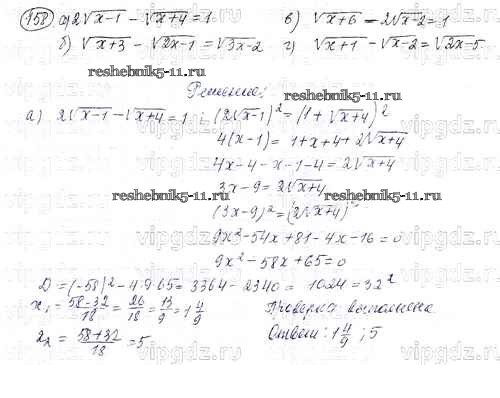 158 а) 2√x-1 - √x+4 = 1 в) √x+6 - 2√x-2 = 1
б) √x+3 - √2x-1 = √3x-2 г) √x+1 - √x-2 = √2x-5
reshebnik5-11.ru
Решение:
а) 2√x-1 - √x+4 = 1 ; (2√x-1)² = (1+√x+4)²
4(x-1) = 1+x+4+2√x+4
4x-4-x-1-4 = 2√x+4
reshebnik5-11.ru
3x-9 = 2√x+4
(3x-9)² = (2√x+4)²
9x²-54x+81-4x-16=0
9x²-58x+65=0
D = (-58)²-4·9·65 = 3364-2340 = 1024 = 32²
x₁ = 58-32/18 = 26/18 = 13/9 = 1 4/9 Проверка выполнена
x₂ = 58+32/18 = 5 Ответ: 1 4/9 ; 5
vipgdz.ru vipgdz.ru vipgdz.ru